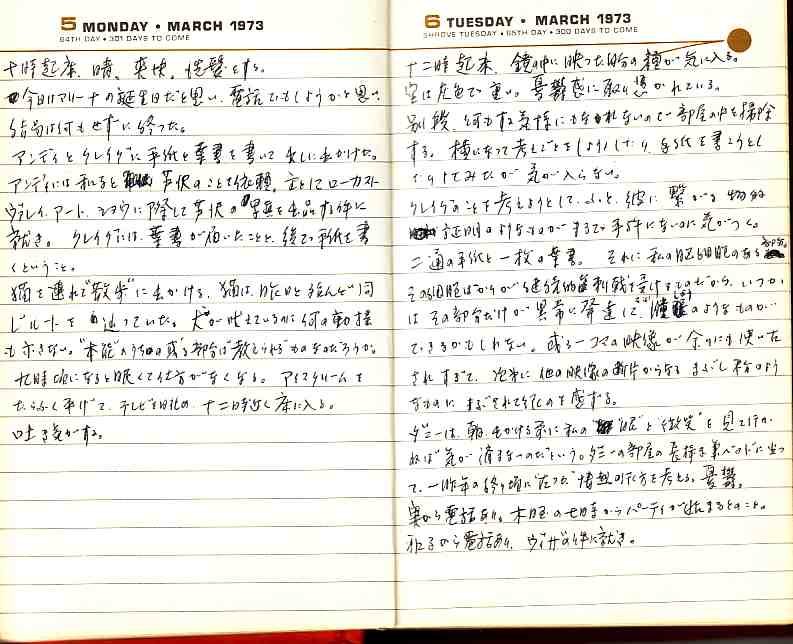 5 MONDAY • MARCH 1973
64TH DAY • 301 DAYS TO COME
十時起床、晴、爽快、洗髪をする。
今日はマリーナの誕生日だと思い、電話でもしようかと思い
結局は何もせずに終った。
アンディとクレイグに手紙と葉書を書いて出しに出かけた。
アンディには和子と芦沢のことを依頼、主としてローカスト
ヴァレイ・アート・ショウに際して芦沢の写真を出品する件に
就き。クレイグには、葉書が届いたことと、後で手紙を書
くということ。
猫を連れて"散歩"に出かける。猫は昨日と殆んど同
じルートを辿っていた。犬が吠えているのに何の動揺
も示さない。"本能"のうちの或る部分は教えられるものなのだろうか。
九時頃になると眠くて仕方がなくなる。アイスクリームを
たらふく平げて、テレビを見、十二時近く床に入る。
吐き気がする。
6 TUESDAY • MARCH 1973
SHROVE TUESDAY • 65TH DAY • 300 DAYS TO COME
十二時起床、鏡の中に映った自分の顔が気に入る。
空は灰色で重い。憂鬱感に取り憑かれている。
別段、何もする気持にもなれないので部屋の中を掃除
する。横になって考えごとをしようとしたり、手紙を書こうとし
たりしてみたが気が入らない。
クレイグのことを考えようとして、ふと、彼に繋がる物的
証明のようなものがまるで手許にないのに気がつく。
二通の手紙と一枚の葉書。それに私の脳細胞のある部分。
その細胞ばかりが継続的な刺戟を受けるのだから、いつか
はその部分だけが異常に発達して、腫瘍のようなものが
できるかもしれない。或る一コマの映像が余りにも使い古
されすぎて、次第に他の映像の断片からなるまぶし粉のよう
なものにまぶされて行くのを感ずる。
ダミーは、朝出かける前に私の"眼"と"微笑"を見て行か
ねば気が済まないのだという。ダミーの部屋の長椅子兼ベッドに坐っ
て、一昨年の終り頃に"だった"情熱的な方を考える。憂鬱。
から電話あり。木曜の七時からパーティが始まるとのこと。
和子から電話あり、ヴィザの件に就き。